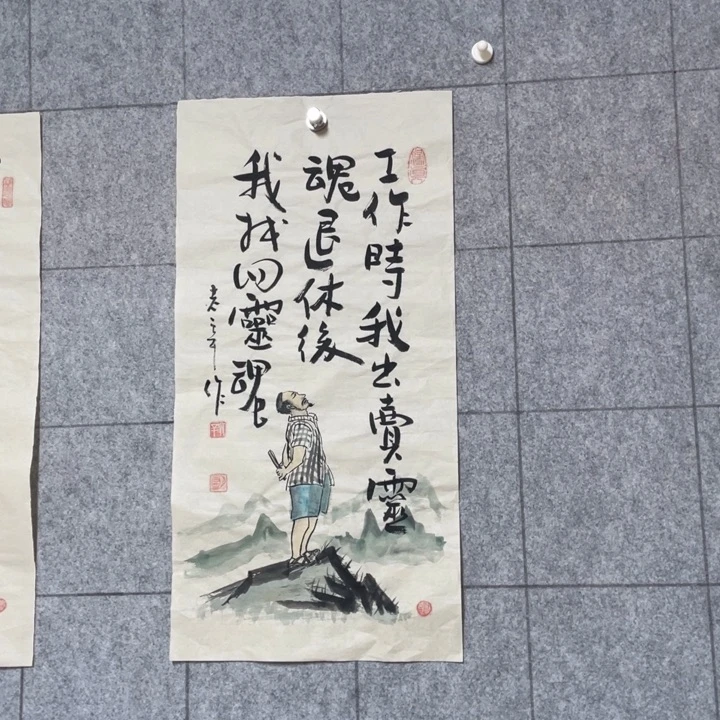 工作時我出賣靈
魂退休後
我找回靈魂
作